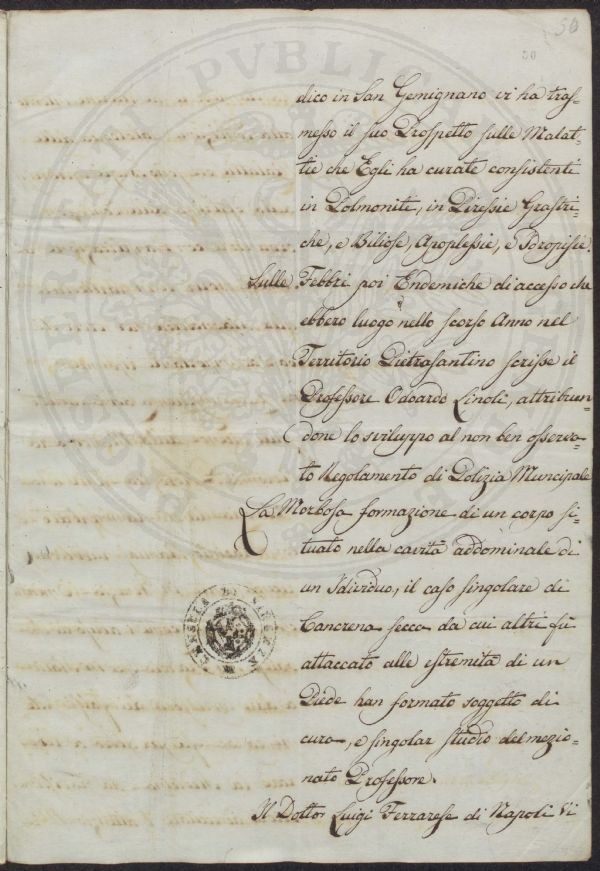 50
50
dico in San Gemignano vi ha tras=
messo il suo Prospetto sulle Malat=
tie che Egli ha curate consistenti
in Polmoniti, in Piressie Grastri=
che, e Biliose, Apoplessie, e Idropisie.
Sulle Febbri poi Endemiche di accesso che
ebbero luogo nello scorso Anno nel
Territorio Pietrasantino scrisse il
Professore Odoardo Linoli, attribuen=
done lo sviluppo al non ben osserva=
to Regolamento di Polizia Muncipale
La Morbosa formazione di un corpo si=
tuato nella cavità addominale di
un Idividuo, il caso singolare di
Cancrena secca da cui altri fù
attaccato alle estremità di un
Piede han formato soggetto di
cura, e singolar studio del mezio=
nato Professore.
Il Dottor Luigi Ferrarese di Napoli Vi